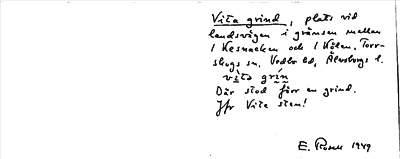 Vita grind, plats vid
landsvägen i gränsen mellan
1 Kesnacken och 1 Kölen, Torr-
skogs sn, Vedbo hd, Älvsborgs l.
vita grin
Där stod förr en grind.
Jfr Vita sten!
E. Rosell 1949